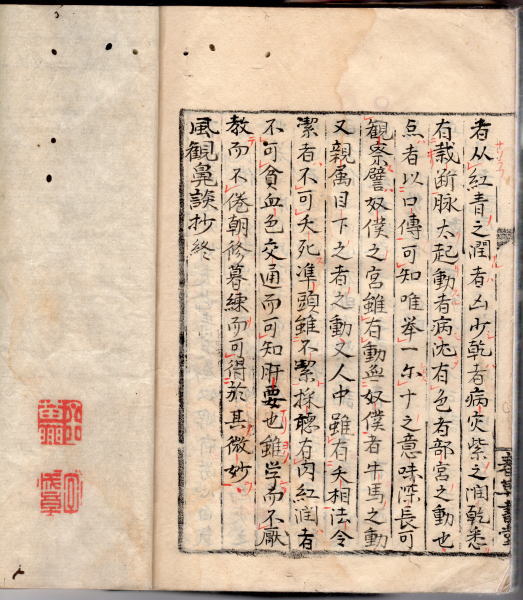 者从紅青之潤者凶少乾者病灾紫之润乾悉
有裁断脉太起動者病沈有色者部宮之動也
点者以口傳可知唯挙一尓十之意味深長可
観察譬奴僕之宮雖有動血奴僕者牛馬之動
又親属目下之者之動又人中雖有夭相法令
潔者不可夭死準頭雖不潔採聴有肉紅润者
不可貧血色交通而可知肝要也雖学而不厭
教而不倦朝修暮練而可得於其微妙
風観鼻談抄終